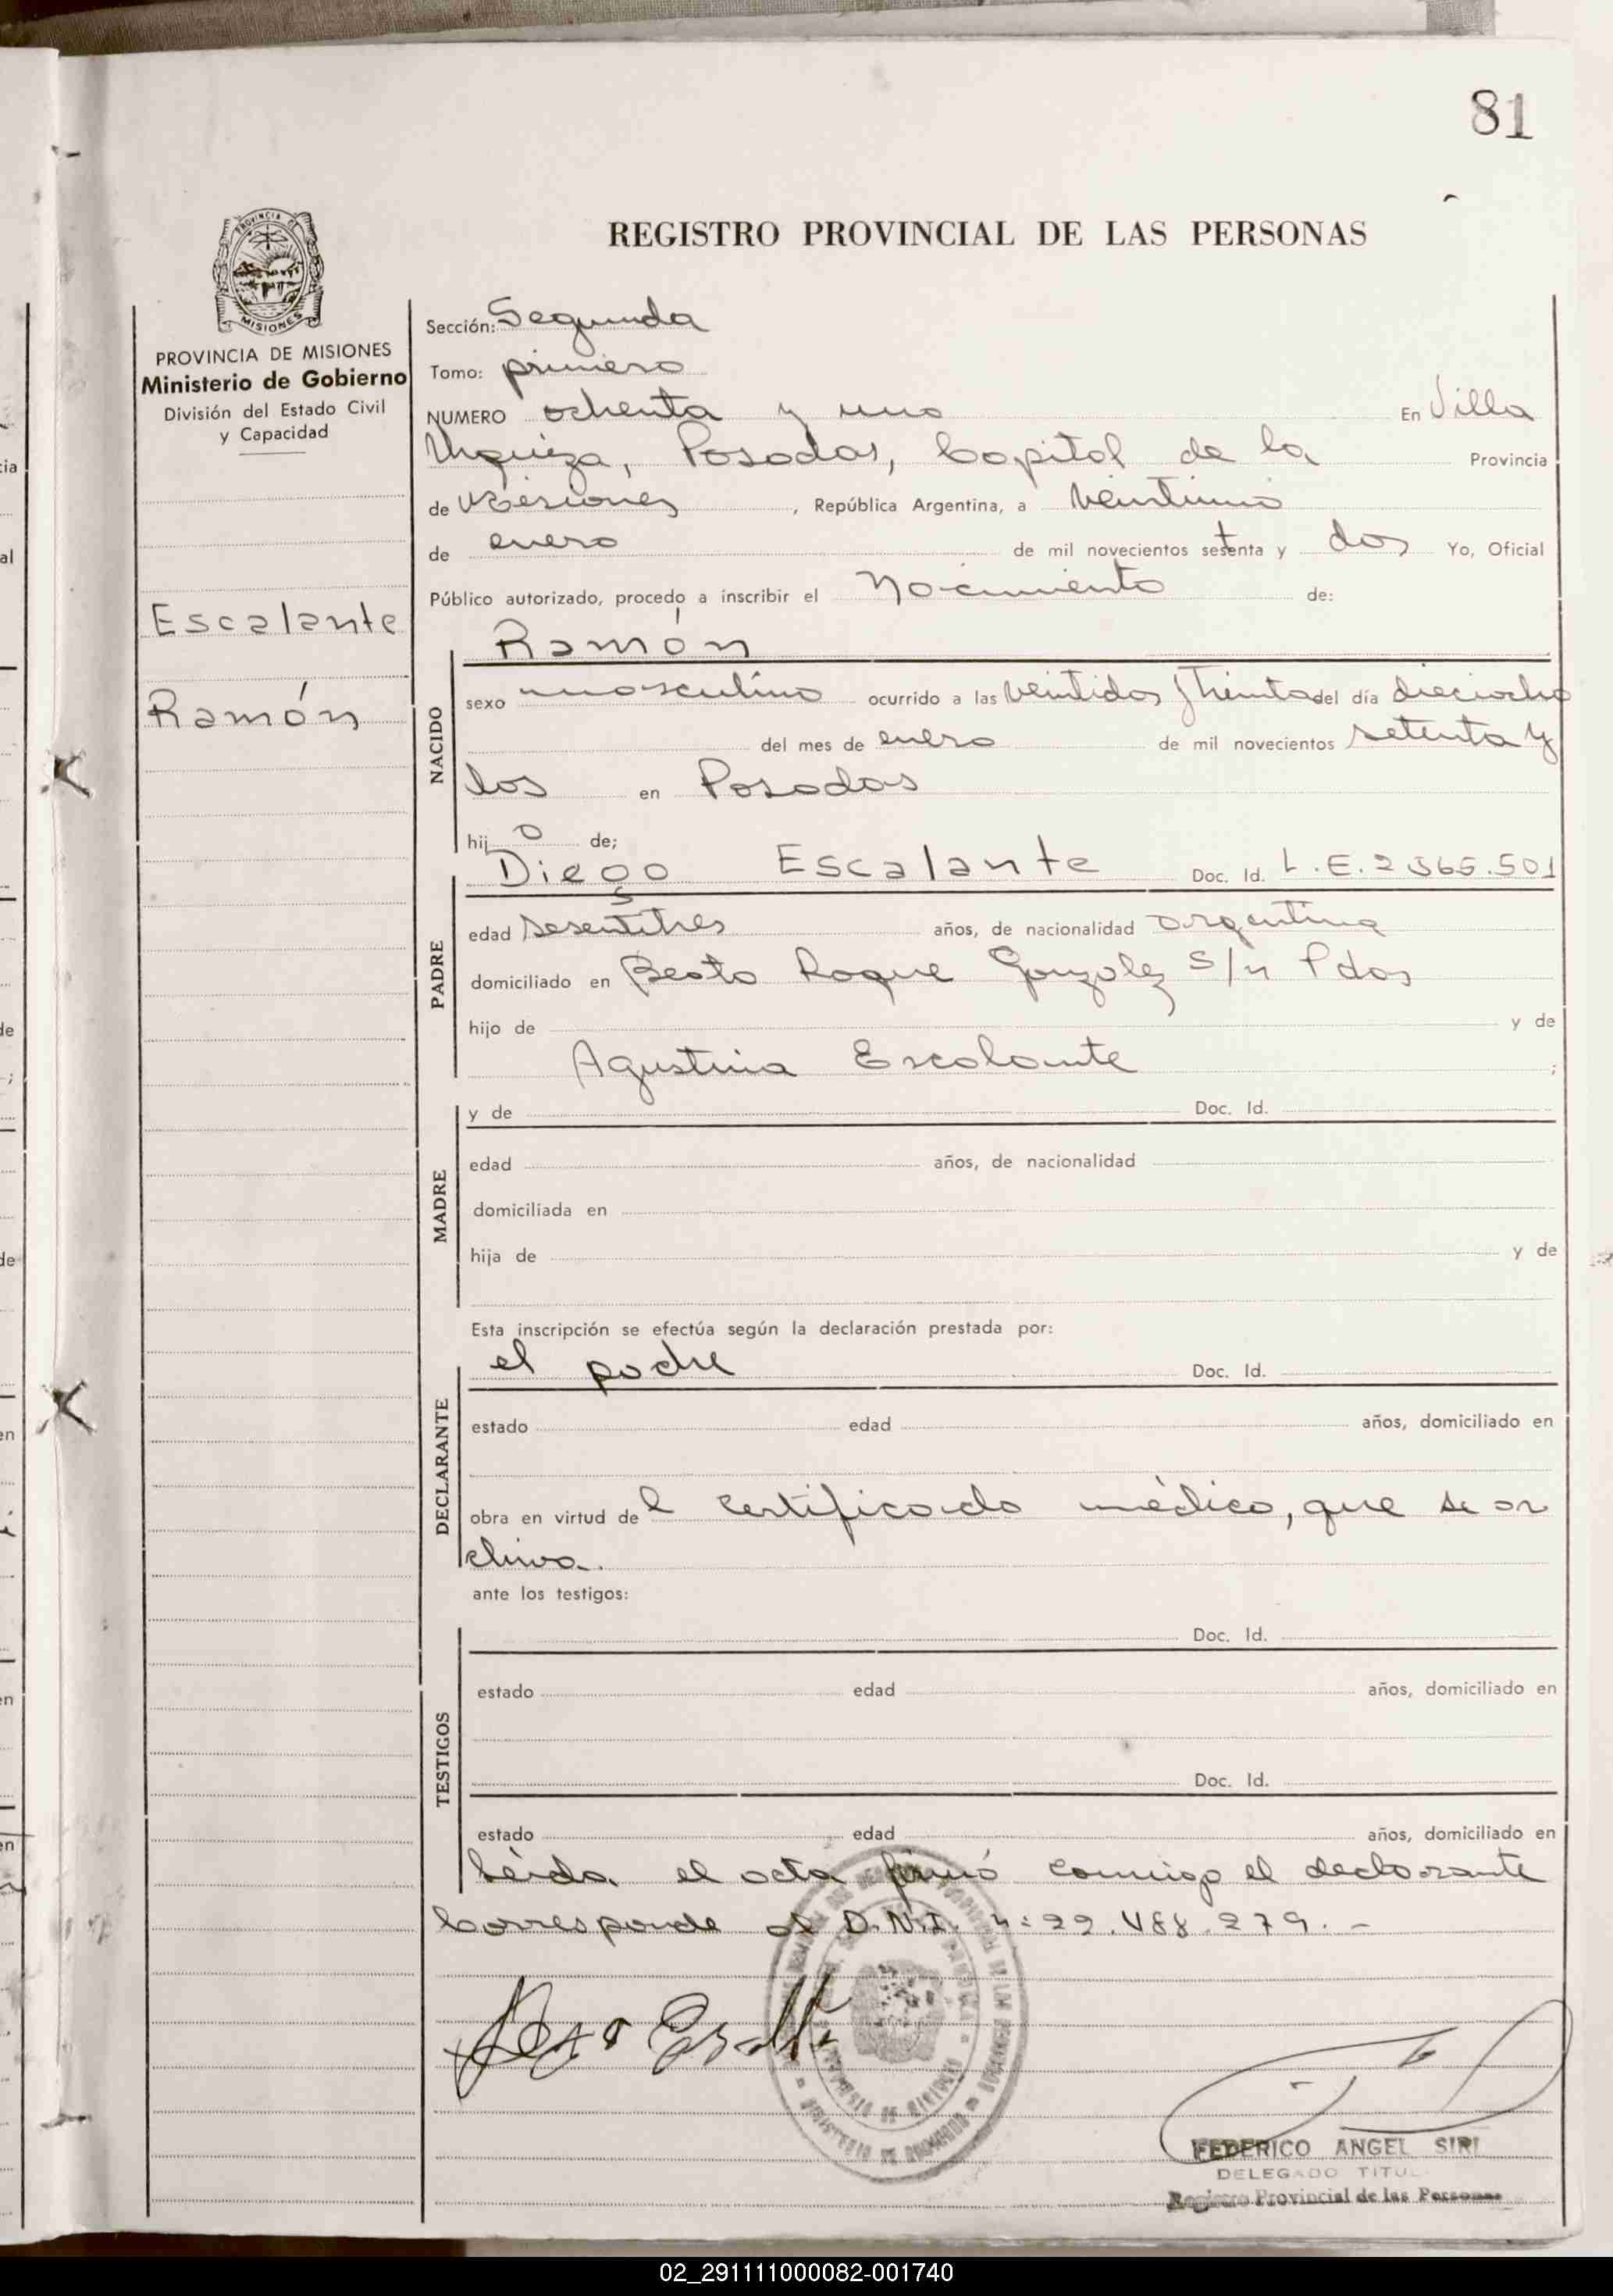 81
REGISTRO PROVINCIAL DE LAS PERSONAS
PROVINCIA DE MISIONES
Ministerio de Gobierno
División del Estado Civil
y Capacidad
Escalante
Ramón
Sección: Segunda
Tomo: primero
NUMERO ochenta y uno En Villa
Urquiza, Posadas, Capital de la Provincia
de Misiones, República Argentina, a veintiuno
de enero de mil novecientos setenta y dos Yo, Oficial
Público autorizado, procedo a inscribir el Nacimiento de:
Ramón
NACIDO
sexo masculino ocurrido a las veintidos y treinta del día dieciocho
del mes de enero de mil novecientos setenta y
dos en Posadas
hijo de;
Diego Escalante Doc. Id. L.E. 2565.501
PADRE
edad sesentitres años, de nacionalidad argentina
domiciliado en Beato Roque Gonzalez s/n Pdas
hijo de y de
Agustina Escalante ;
MADRE
y de Doc. Id.
edad años, de nacionalidad
domiciliada en
hija de y de
Esta inscripción se efectúa según la declaración prestada por:
el padre Doc. Id.
DECLARANTE
estado edad años, domiciliado en
obra en virtud del certificado médico, que se ar
chiva.
ante los testigos:
Doc. Id.
TESTIGOS
estado edad años, domiciliado en
Doc. Id.
estado edad años, domiciliado en
Leída el acta firmó conmigo el declarante
Corresponde al D.N.I. n: 22.488.279.-
FEDERICO ANGEL SIRI
DELEGADO TITUL
Registro Provincial de las Personas
02_291111000082-001740